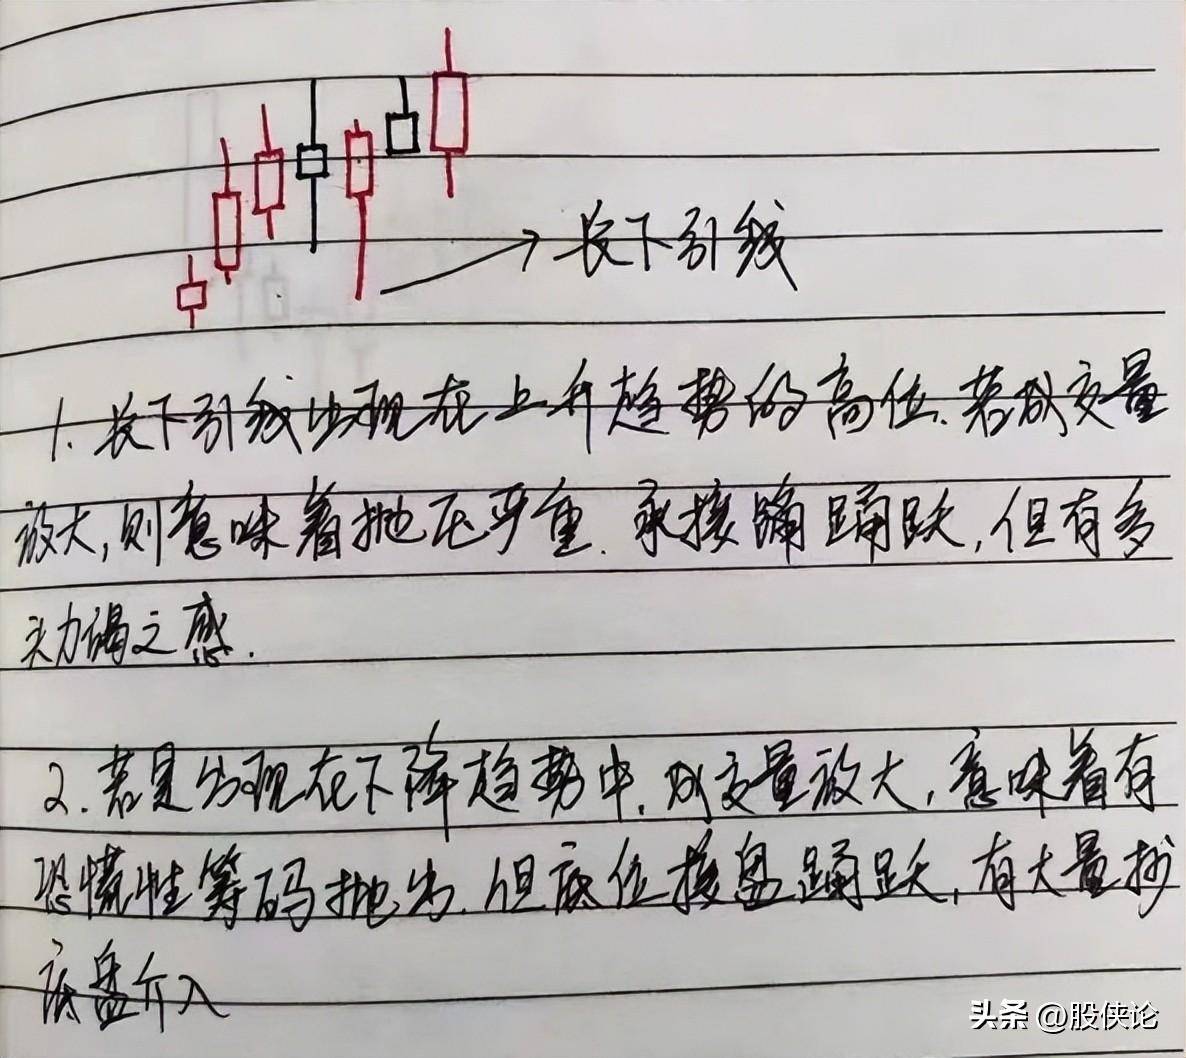 长下引线
1. 长下引线出现在上升趋势的高位.若成交量
放大,则意味着抛压严重.承接踊踊跃,但有多
头力竭之感.
2.若是出现在下降趋势中.成交量放大,意味着有
恐慌性筹码抛出.但底位接盘踊跃,有大量抄
底盘介入
头条 @股侠论